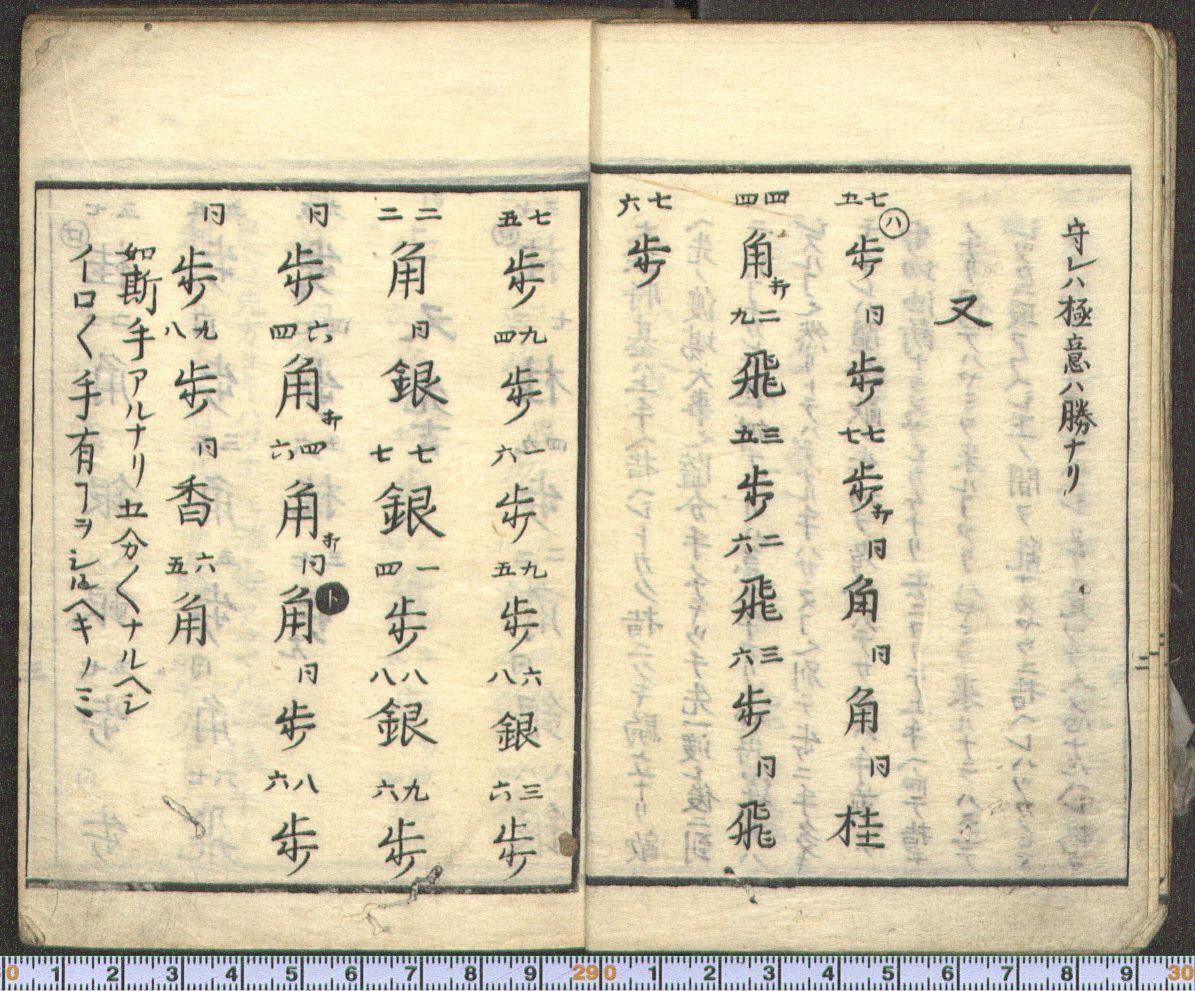 守レハ極意ハ勝ナリ
又
七五㋩歩 同歩 七七歩打 同角 同角 同桂
四四角打 二九飛 三五歩 二六飛 三六歩 同飛
七六歩
七五歩 九四歩 一六歩 九五歩 六八銀 三六歩
二二角 同銀 七七銀 一四歩 八八銀 九六歩
同歩 六四角打 四六角打 同角 ト 同歩 八六歩
同歩 九八歩 同香 六五角
如斯手アルナリ 五分〱ナルヘシ
イロ〱手有ヿヲシルヘキノミ
0 1 2 3 4 5 6 7 8 9 29 0 1 2 3 4 5 6 7 8 9 30